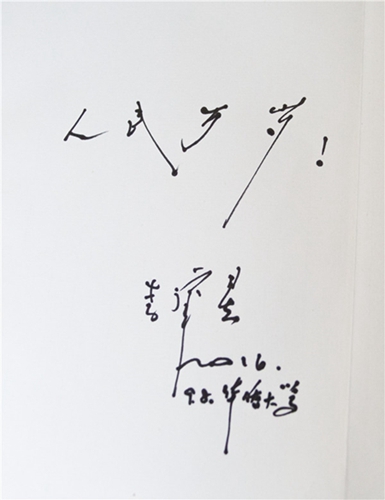 人民万岁!
2016.
9.8. 华侨大学